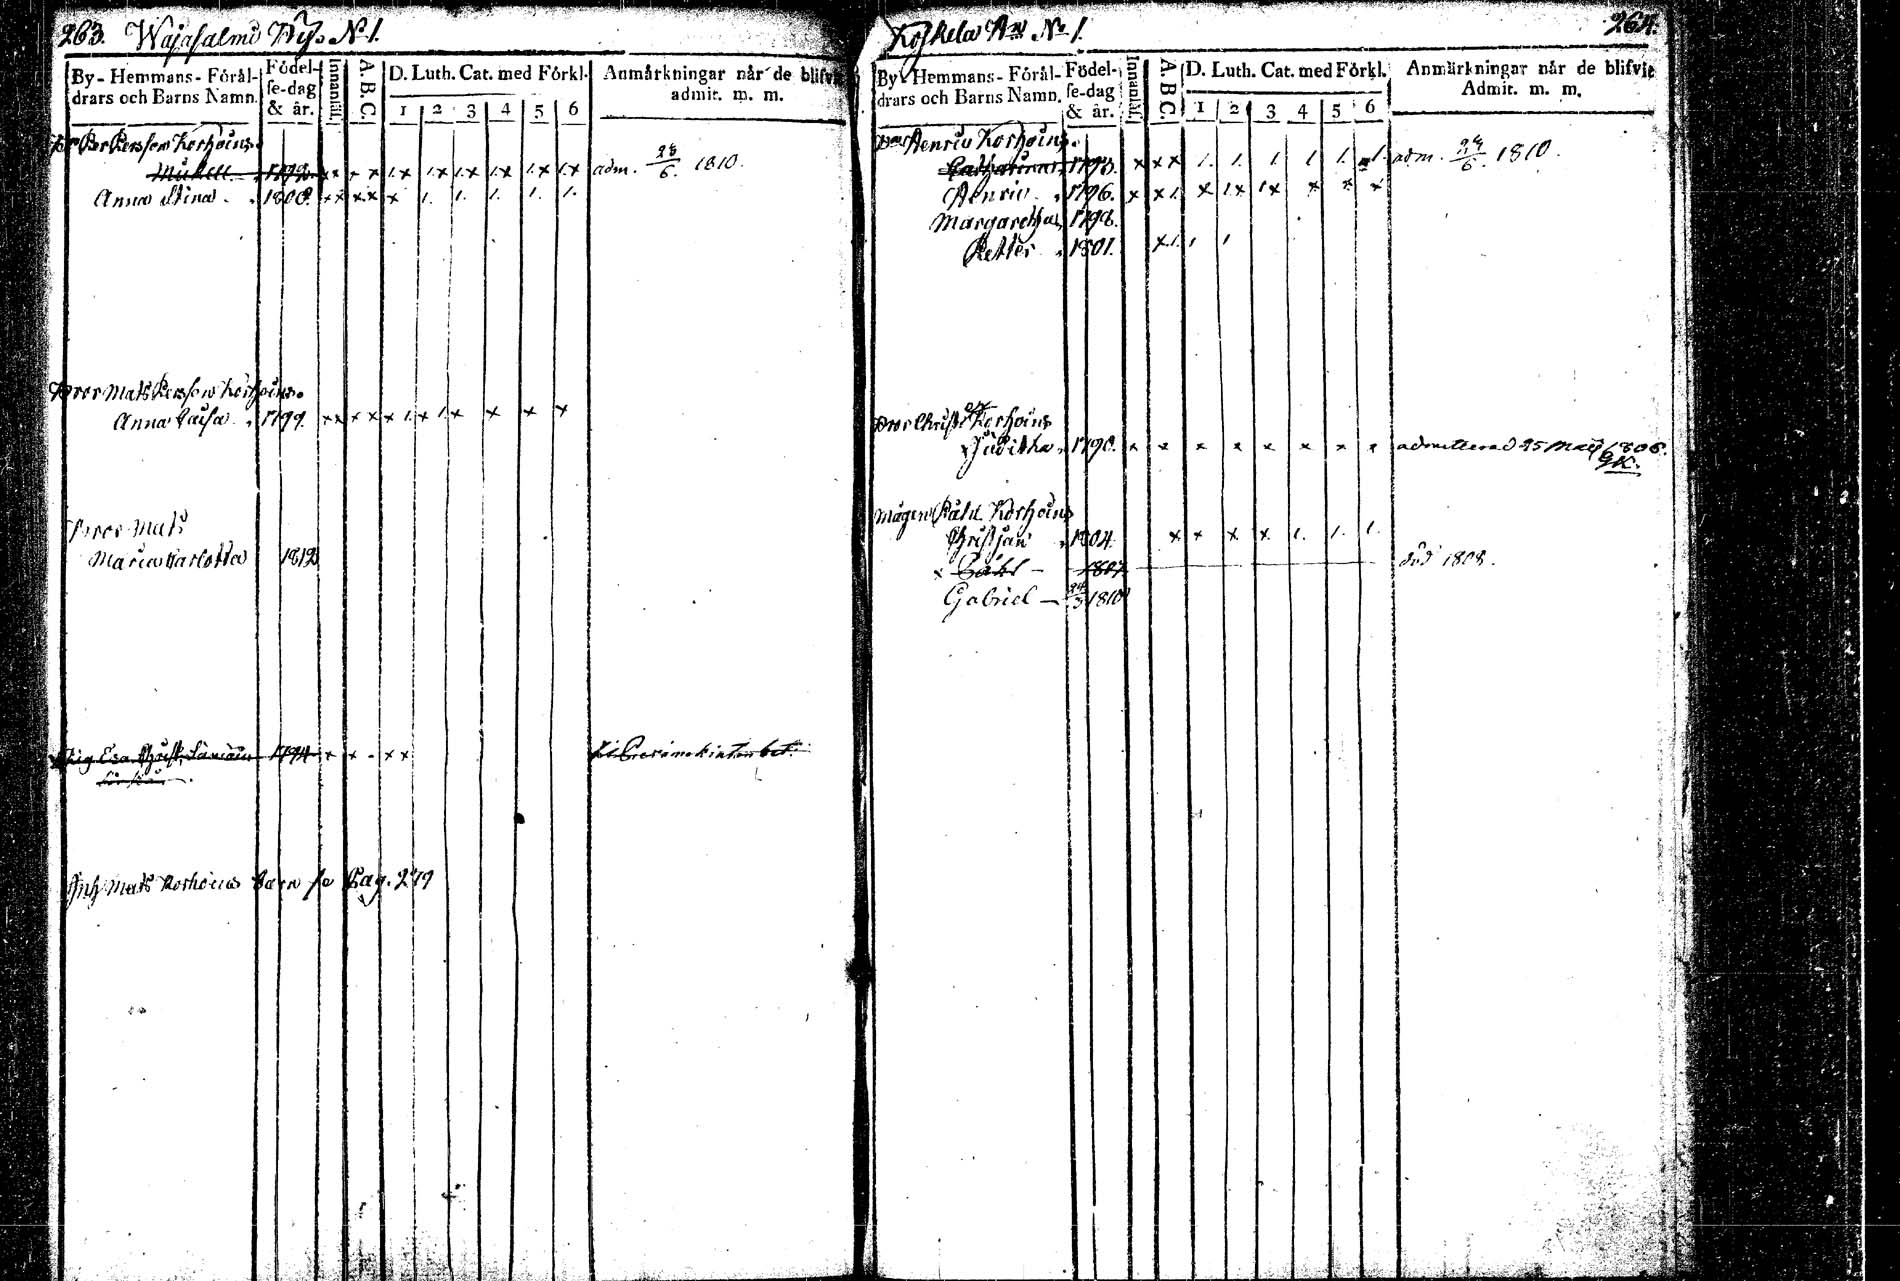 263. Wajasalmi By. No 1.
By - Hemmans - Föräl-
drars och Barns Namn.
Födel-
se-dag
& år.
Innanläs.
A. B. C.
D. Luth. Cat. med Förkl.
1 2 3 4 5 6
Anmärkningar når de blifvit
admit. m. m.
Per Persson Korhoins
Mickell 1792 x x - x 1.x 1.x 1.x 1.x 1.x 1.x adm. 28/6. 1810.
Anna Stina 1808. x x x x x 1. 1. 1. 1. 1.
Bror Mats Persson Korhoins.
Anna Caisa 1799. x x x x x 1. x 1. x x x x
Bror Mats
Maria Carlotta 1812
Eva 1794 x x - x x
Mats Korhoins Barn se Pag. 279
Koskela No 1. 264.
By - Hemmans - Föräl-
drars och Barns Namn.
Födel-
se-dag
& år.
Innanläs.
A. B. C.
D. Luth. Cat. med Förkl.
1 2 3 4 5 6
Anmärkningar når de blifvit
Admit. m. m.
Henric Korhoins.
Catharina 1793. x x x 1. 1. 1 1 1. 1. adm. 24/6. 1810.
Henric 1796. x x 1. x 1x 1x x x x
Margaretha 1798.
Petter 1801. x 1. 1 1
Bror Christ. Korhoins
Juditha 1790. x x x x x x x x admitterad 25 Maij 1806.
GK.
Mågen Påhl Korhoins
Christjan 1804. x x x x 1. 1. 1.
x Påhl - 1807 död 1808.
Gabriel - 24/3 1810